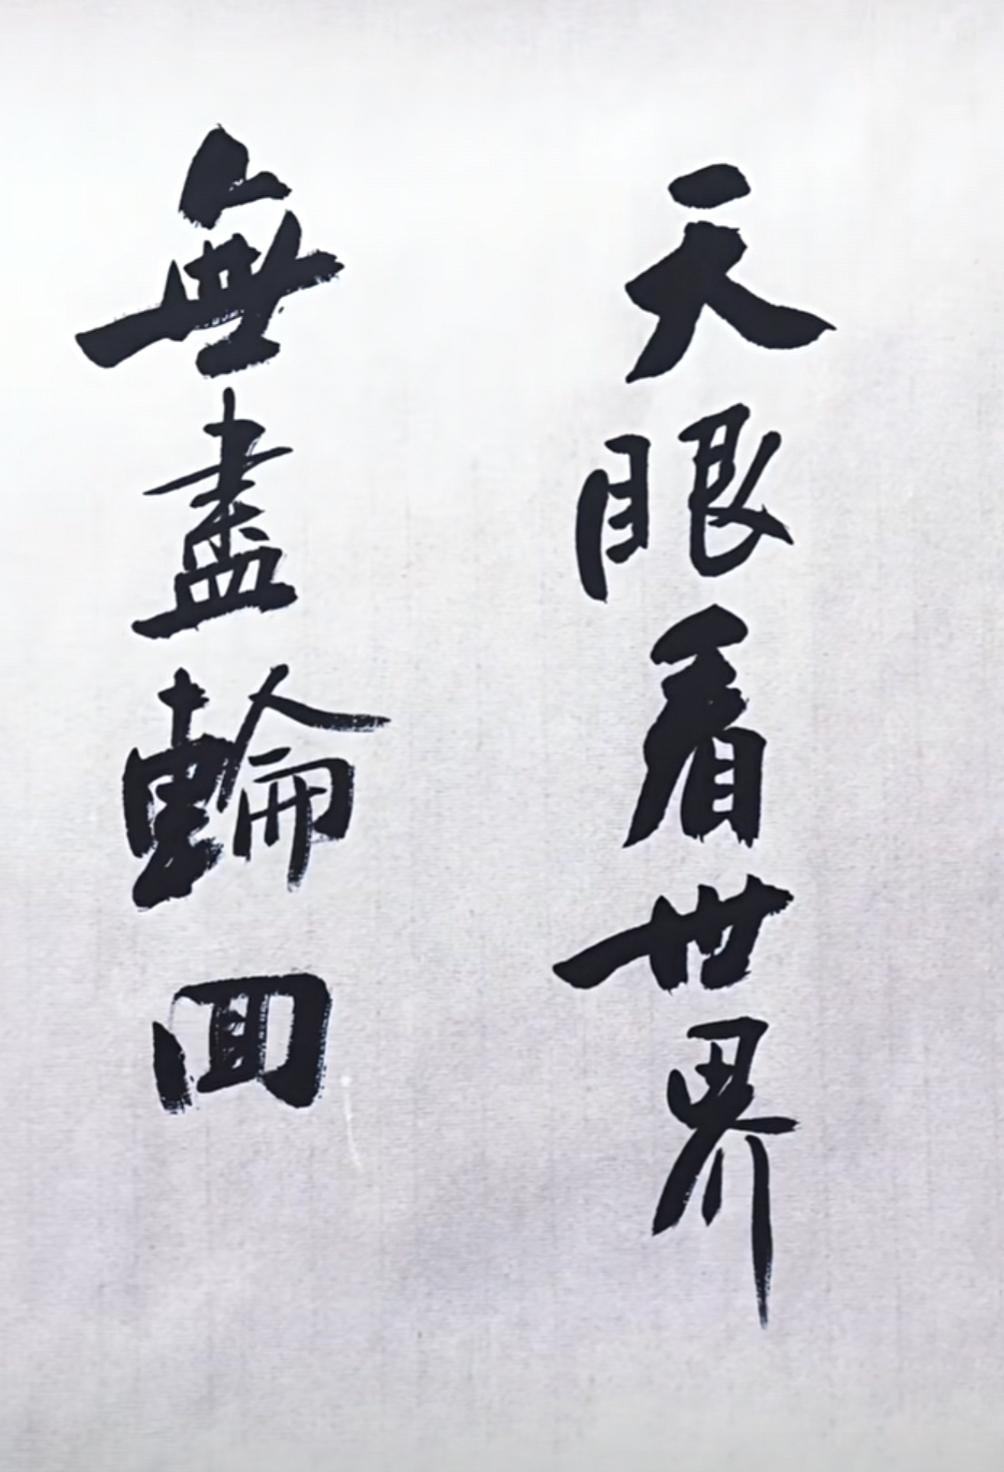 天眼看世界
無盡輪回